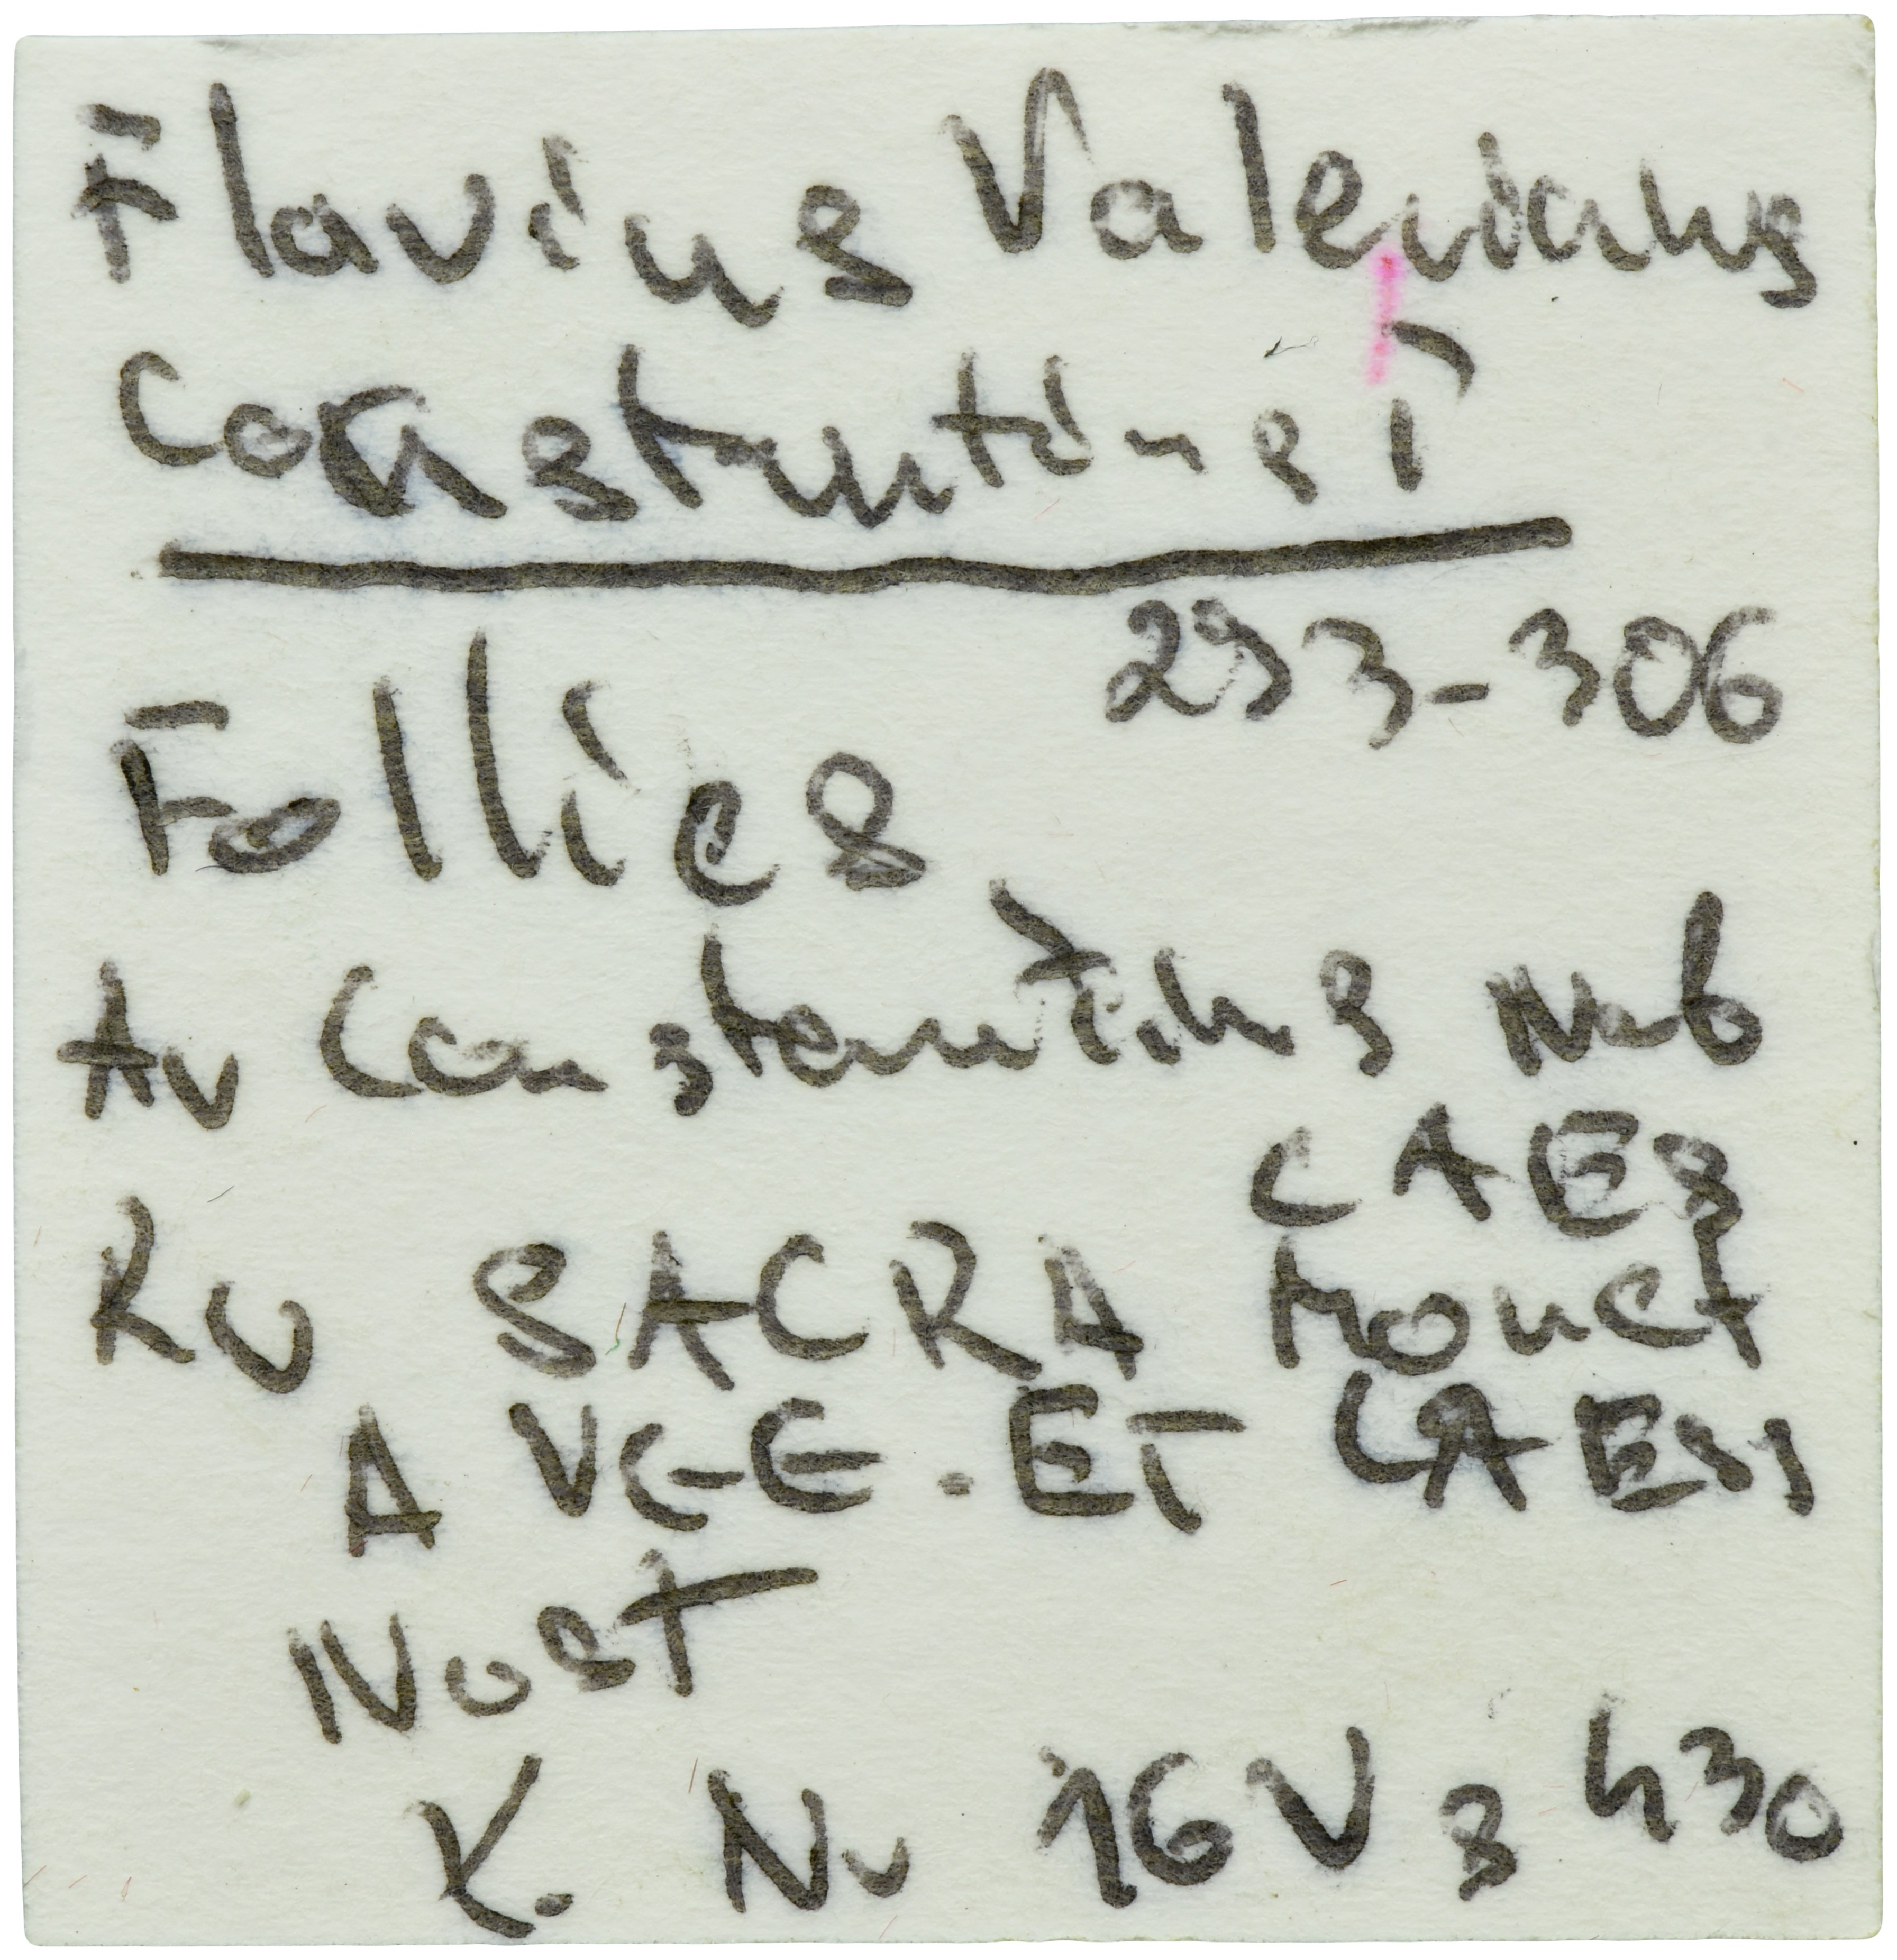 Flavius Valerianus
Constantins I
293-306
Follies
Av Constantins Nob
CAES
Rv SACRA Monet
AVGG. ET CAESS
Nost
K. Nv 16 V s 430